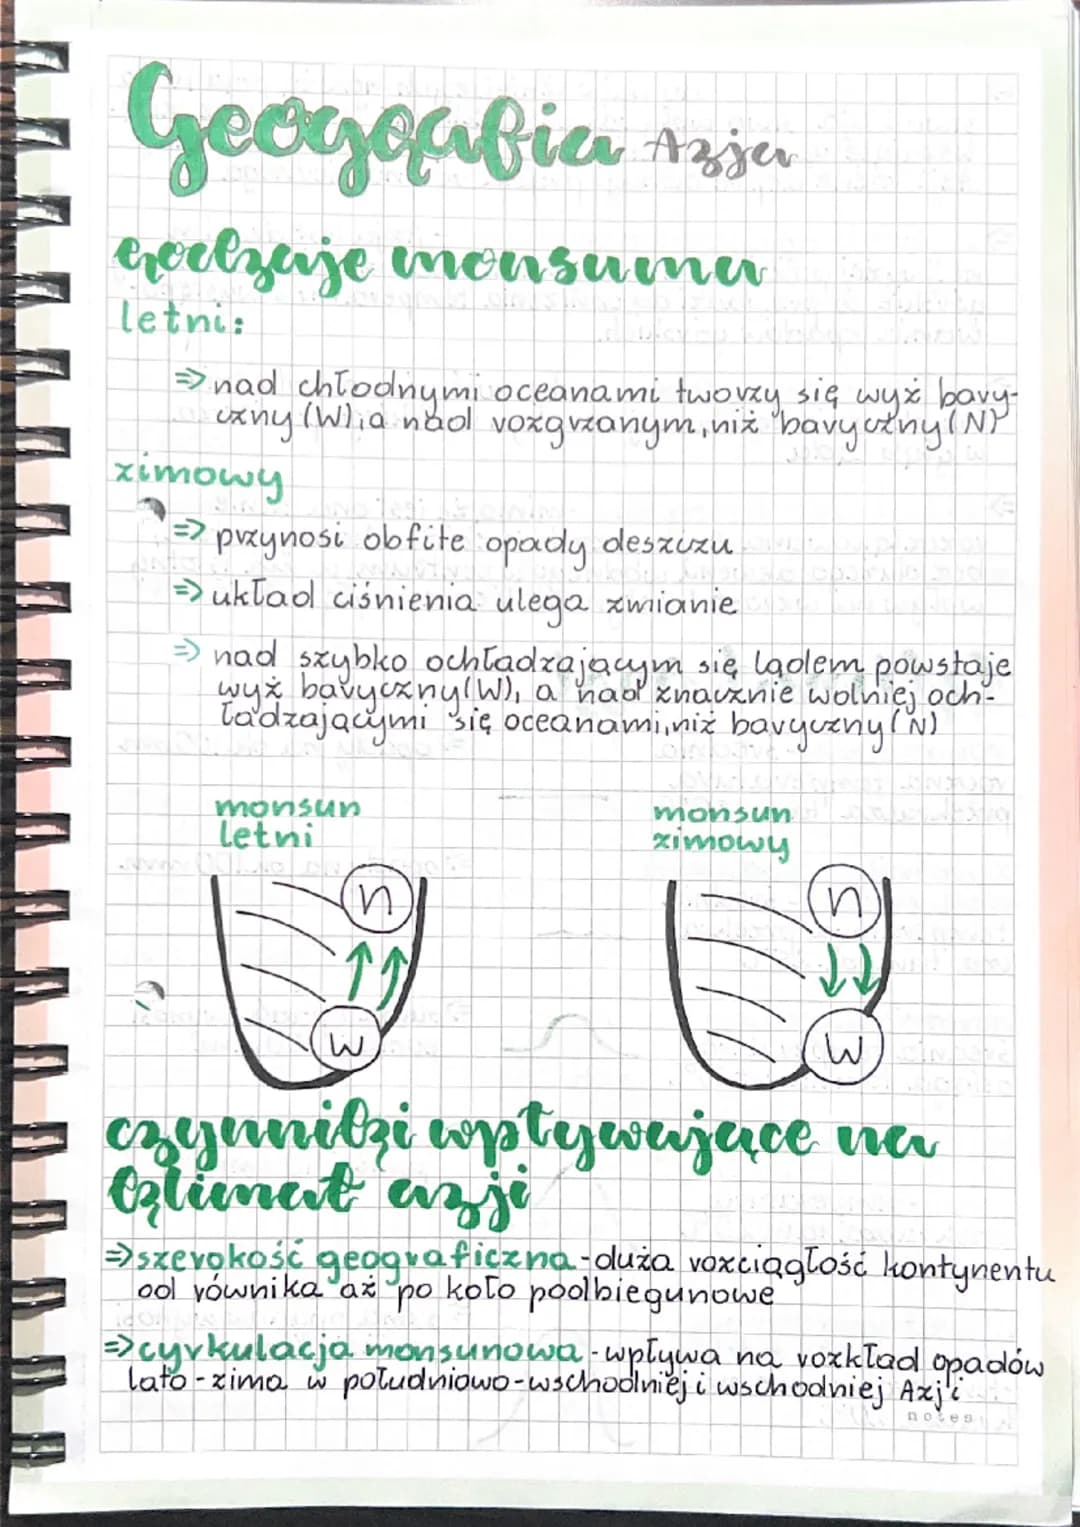 Geografia Azja
rodzaje monsunu
letni:
=> nad chłodnymi oceanami tworzy się wyż bary-
czny (W), a nad rozgrzanym, niż baryczny (N)
zimowy
=> przynosi obfite opady deszczu
=> układ ciśnienia ulega zmianie
=> nad szybko ochładzającym się lądem powstaje
wyż baryczny (W), a nad znacznie wolniej och-
ładzającymi się oceanami, niż baryczny (N)
monsun
letni
monsun
zimowy
n
n
w
w
czynniki wpływające na
klimat azji
=> szerokość geograficzna - duża rozciągłość kontynentu
od równika aż po koło podbiegunowe
=> cyrkulacja monsunowa - wpływa na rozkład opadów
lato - zima w południowo-wschodniej i wschodniej Azji
notes